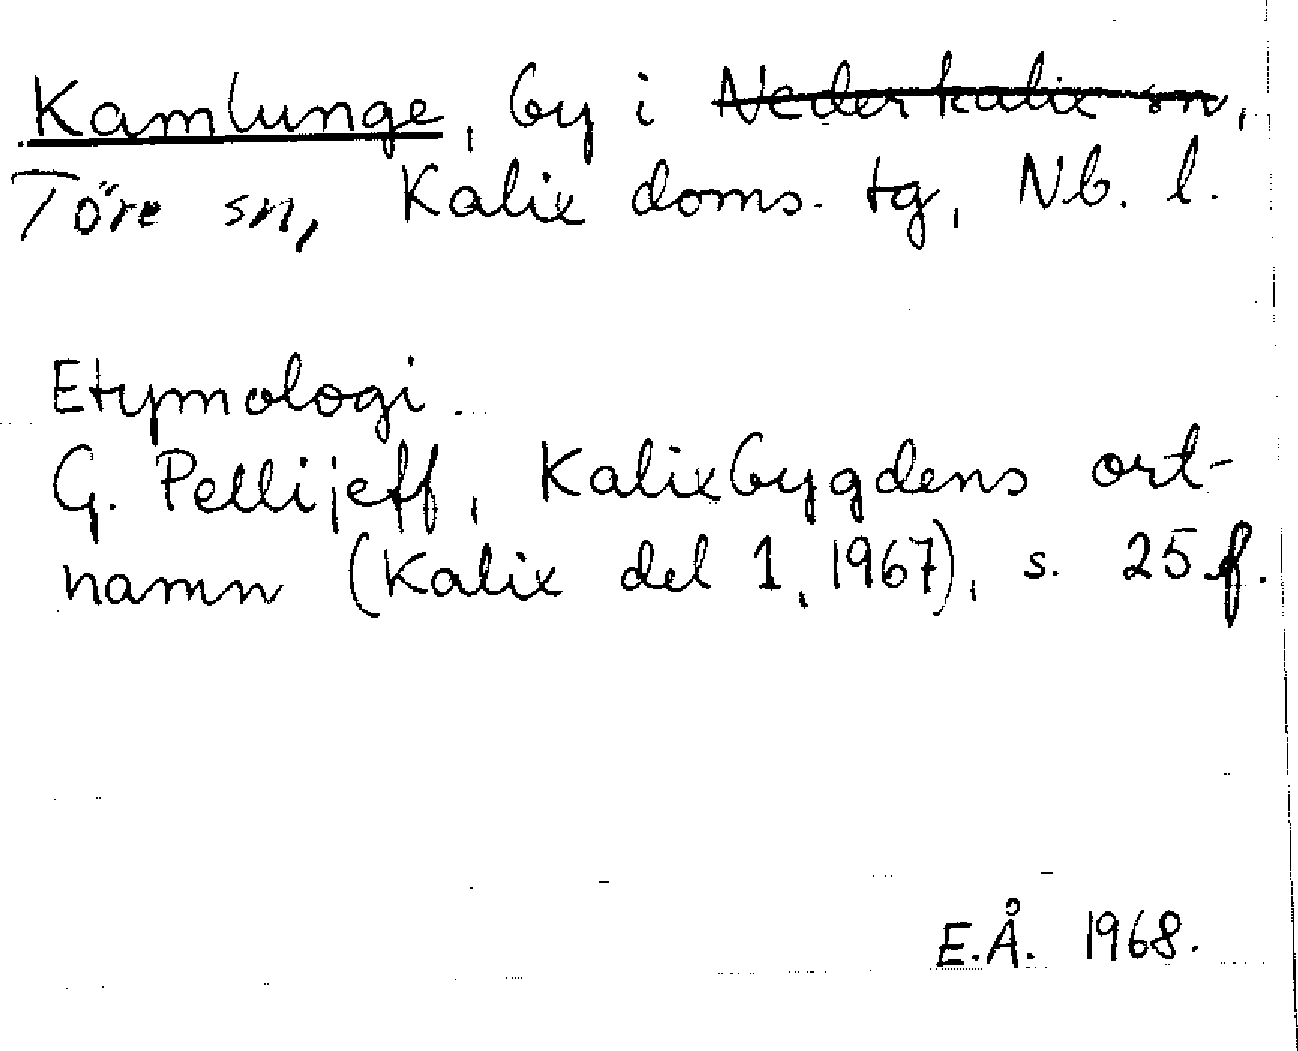 Kamlunge, by i Nederkalix sn,
Töre sn, Kalix doms. tg, Nb. l.
Etymologi.
G. Pellijeff, Kalixbygdens ort-
namn (Kalix del 1, 1967), s. 25 f.
E.Å. 1968.